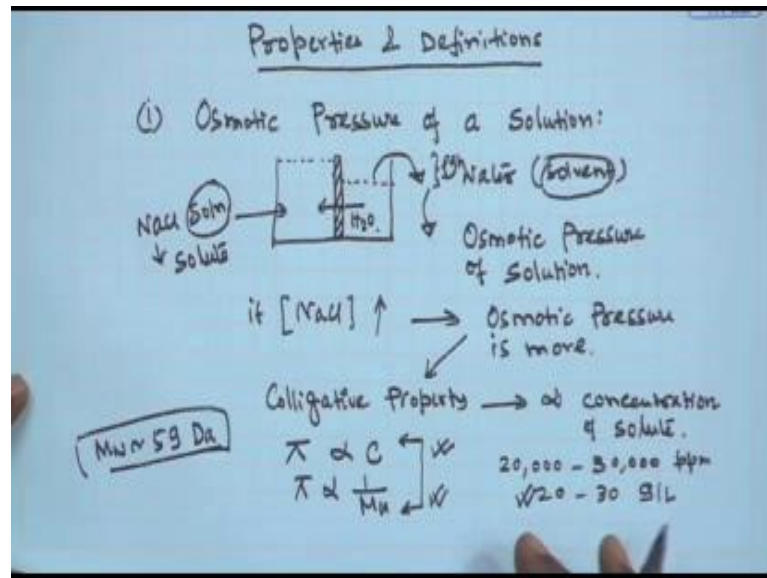 Properties & Definitions
(1) Osmotic Pressure of a Solution:
Water (Solvent)
NaCl Soln
H2O.
solute
Osmotic Pressure
of Solution.
if [NaCl] ↑ → Osmotic Pressure
is more.
Colligative Property → ∝ concentration
of solute.
Mw ~ 59 Da
π ∝ C
20,000 - 30,000 ppm
π ∝ 1/Mw
20 - 30 g/L